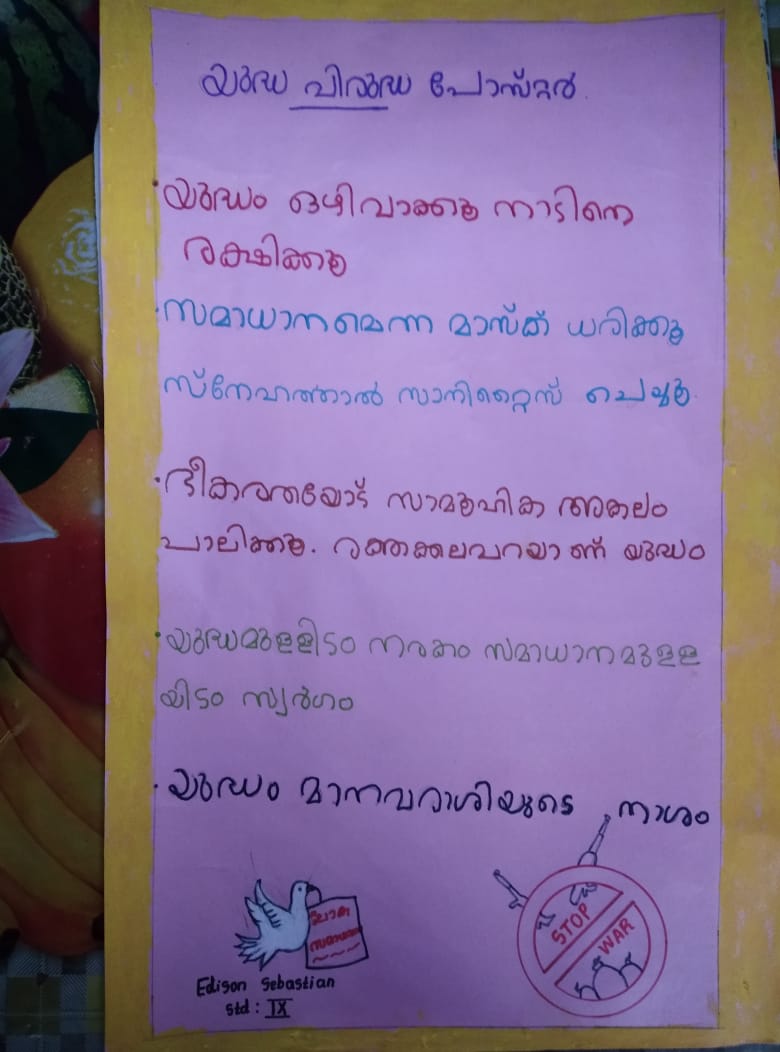 യുദ്ധ വിരുദ്ധ പോസ്റ്റർ
യുദ്ധം ഒഴിവാക്കൂ നാടിനെ
രക്ഷിക്കൂ
സമാധാനമെന്ന മാസ്ക് ധരിക്കൂ
സ്നേഹത്താൽ സാനിറ്റൈസ് ചെയ്യൂ.
ഭീകരതയോട് സാമൂഹിക അകലം
പാലിക്കൂ. രക്തക്കലവറയാണ് യുദ്ധം
യുദ്ധമുള്ളിടം നരകം സമാധാനമുള്ള
യിടം സ്വർഗം
യുദ്ധം മാനവരാശിയുടെ നാശം
ലോക
സമാധാനം
STOP
WAR
Edison Sebastian
std : IX